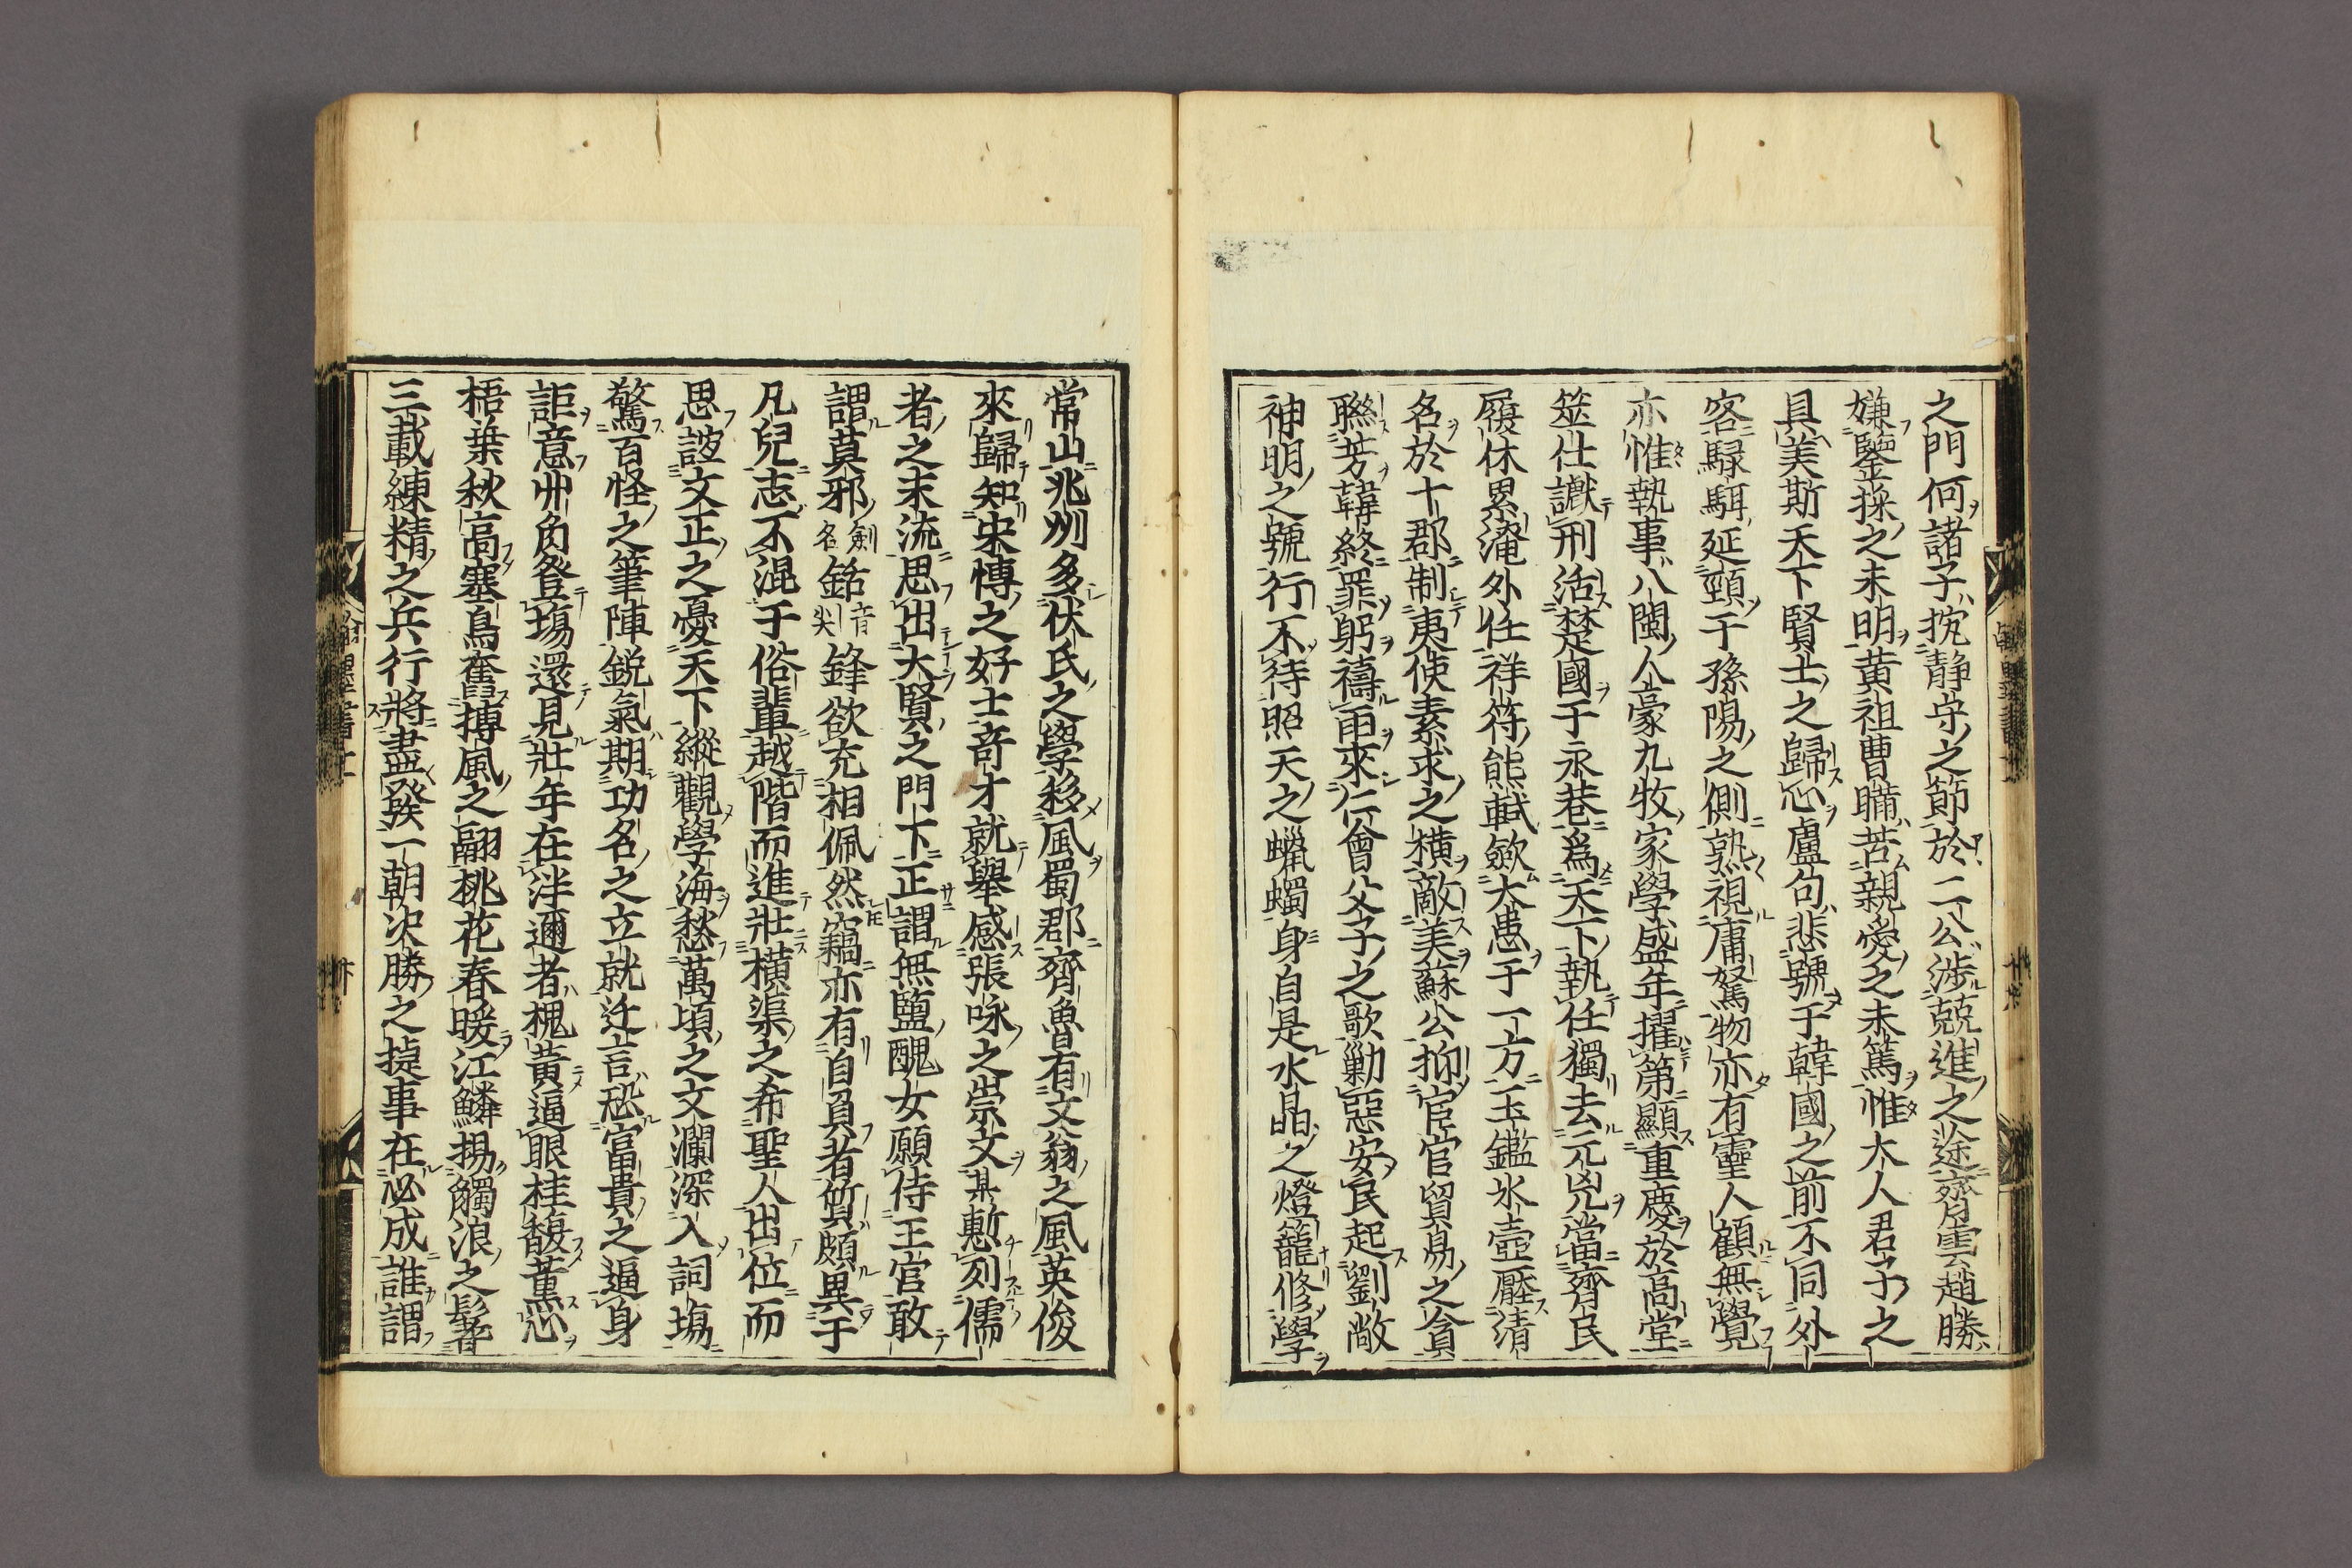 之門何諸子挖靜守之節於二公涉競進之途齊雲趙勝
嫌鑒操之未明黄祖曹瞞苦親愛之未篤惟大人君子之
具美斯天下賢士之歸心盧句悲號于韓國之前不同外
客騄駬延頸于孫陽之側熟視庸駑物亦有靈人顧無覺
亦惟執事八閩人豪九牧家學盛年擢第顯重慶於高堂
筮仕讞刑活楚國于永巷爲天下執任獨去元兇當齊民
履休累淹外任祥符熊軾歛大患于一方玉鑑氷壺壓清
名於十郡制夷使素求之橫敵美蘇公抑宦官貿易之貪
聮芳韓終罪躬禱雨來仁會父子之歌勦惡安民起劉敞
神明之號行不待照天之蠟蠋身自是水晶之燈籠修學
常山兆州多伏氏之學移風蜀郡齊魯有文翁之風英俊
來歸知宋愽之好士竒才就舉感張咏之崇文某慙列儒
者之末流思出大賢之門下正謂無鹽醜女願侍王宫敢
謂莫邪劍名銛音尖鋒欲充相佩然竊亦有自負者質頗異于
凡兒志不混于俗輩越階而進壯橫渠之希聖人出位而
思詖文正之憂天下縱觀學海愁萬頃之文瀾深入詞塲
驚百怪之筆陣鋭氣期功名之立就迂言恐富貴之逼身
詎意丱角登塲還見壯年在泮邇者槐黄逼眼桂馥薰心
梧葉秋高塞鳥奮搏風之翮桃花春暖江鱗揚觸浪之鬐
三載練精之兵行將盡發一朝决勝之㨗事在必成誰謂